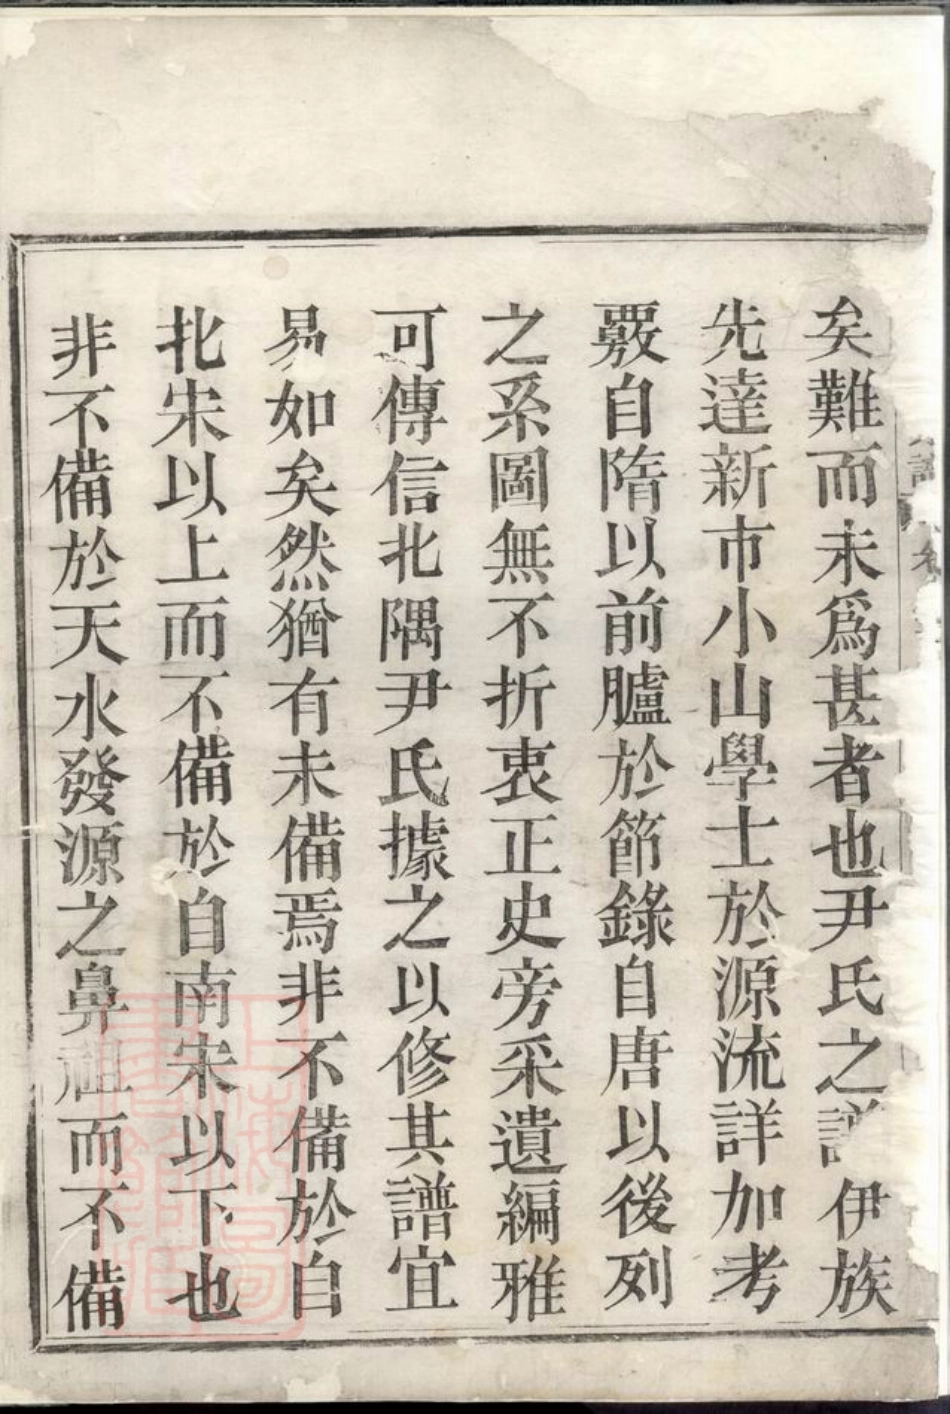 矣難而未爲甚者也尹氏之譜伊族
先達新市小山學士於源流詳加考
覈自隋以前臚於節錄自唐以後列
之系圖無不折衷正史旁采遺編雅
可傳信北隅尹氏據之以修其譜宜
易如矣然猶有未備焉非不備於自
北宋以上而不備於自南宋以下也
非不備於天水發源之鼻祖而不備